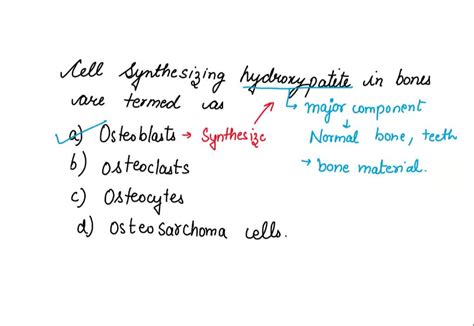 Cell Synthesizing hydroxypatite in bones
are termed as
↳ major component
↓
a) Osteoblasts → Synthesize
Normal bone, teeth
b) osteoclasts
→ bone material.
c) Osteocytes
d) Osteosarchoma cells.